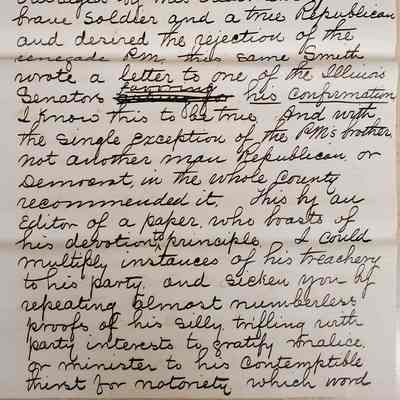 brave Soldier and a true Republican
and desired the rejection of the
renegade P.M. this same Smith
wrote a letter to one of the Illinois
Senators favoring his confirmation
I know this to be true. And with
the single exception of the P.M's brother
not another man Republican, or
Democrat, in the whole County
recommended it. This by an
Editor of a paper, who boasts of
his devotion to principle. I could
multiply instances of his treachery
to his party, and sicken you by
repeating almost numberless
proofs of his silly, trifling with
party interests to gratify malice,
or minister to his contemptible
thirst for notoriety, which word